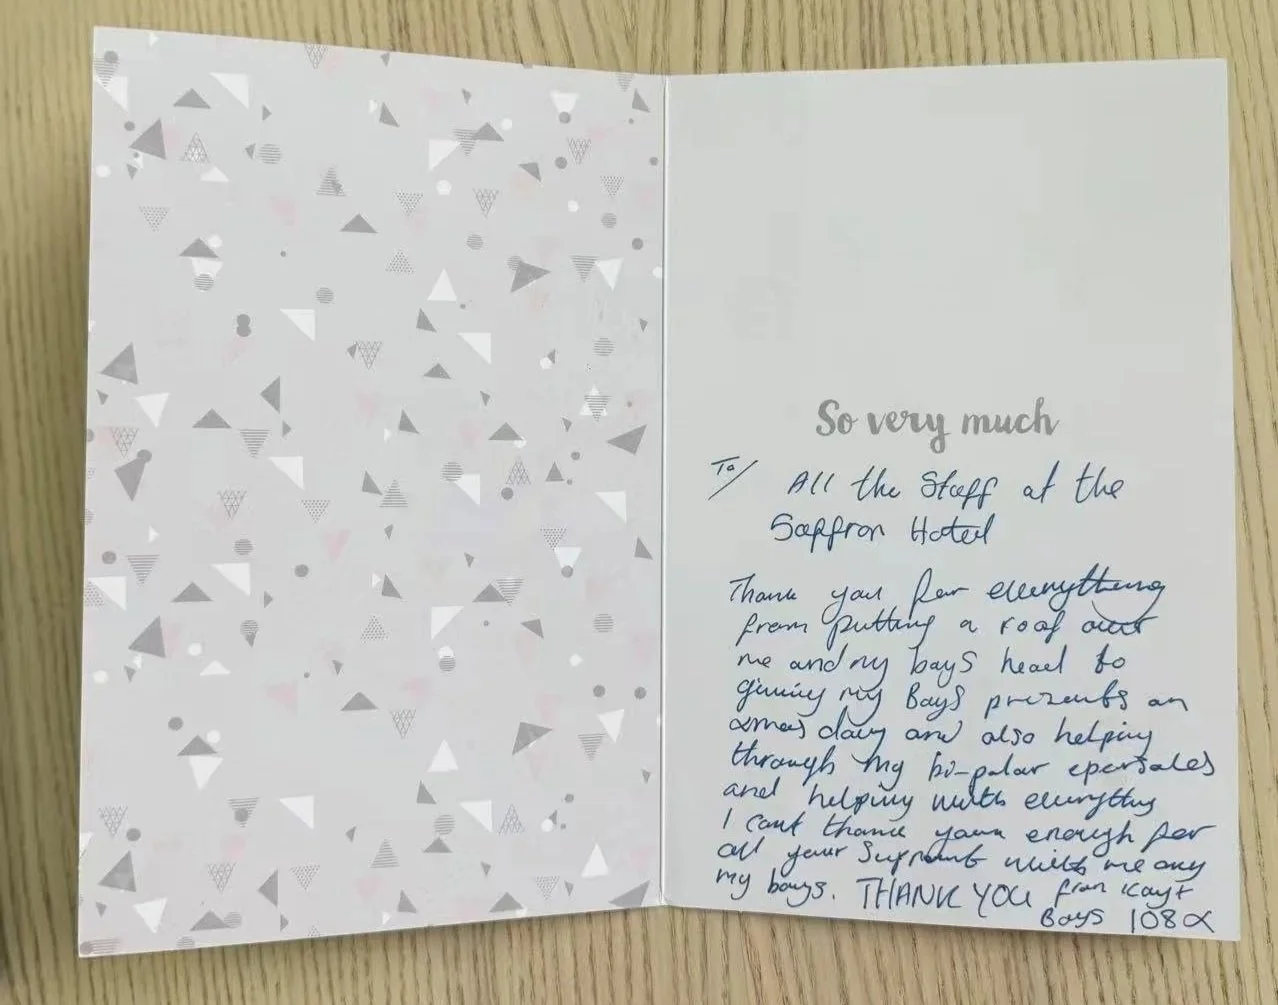 So very much
To/ All the Staff at the
Saffron Hotel
Thank you for everything
from putting a roof over
me and my boys head to
giving my Boys presents on
xmas day and also helping
through my bi-polar
and helping with everything
I cant thank you enough for
all your Support with me any
my boys. THANK YOU from Kay +
Boys 108